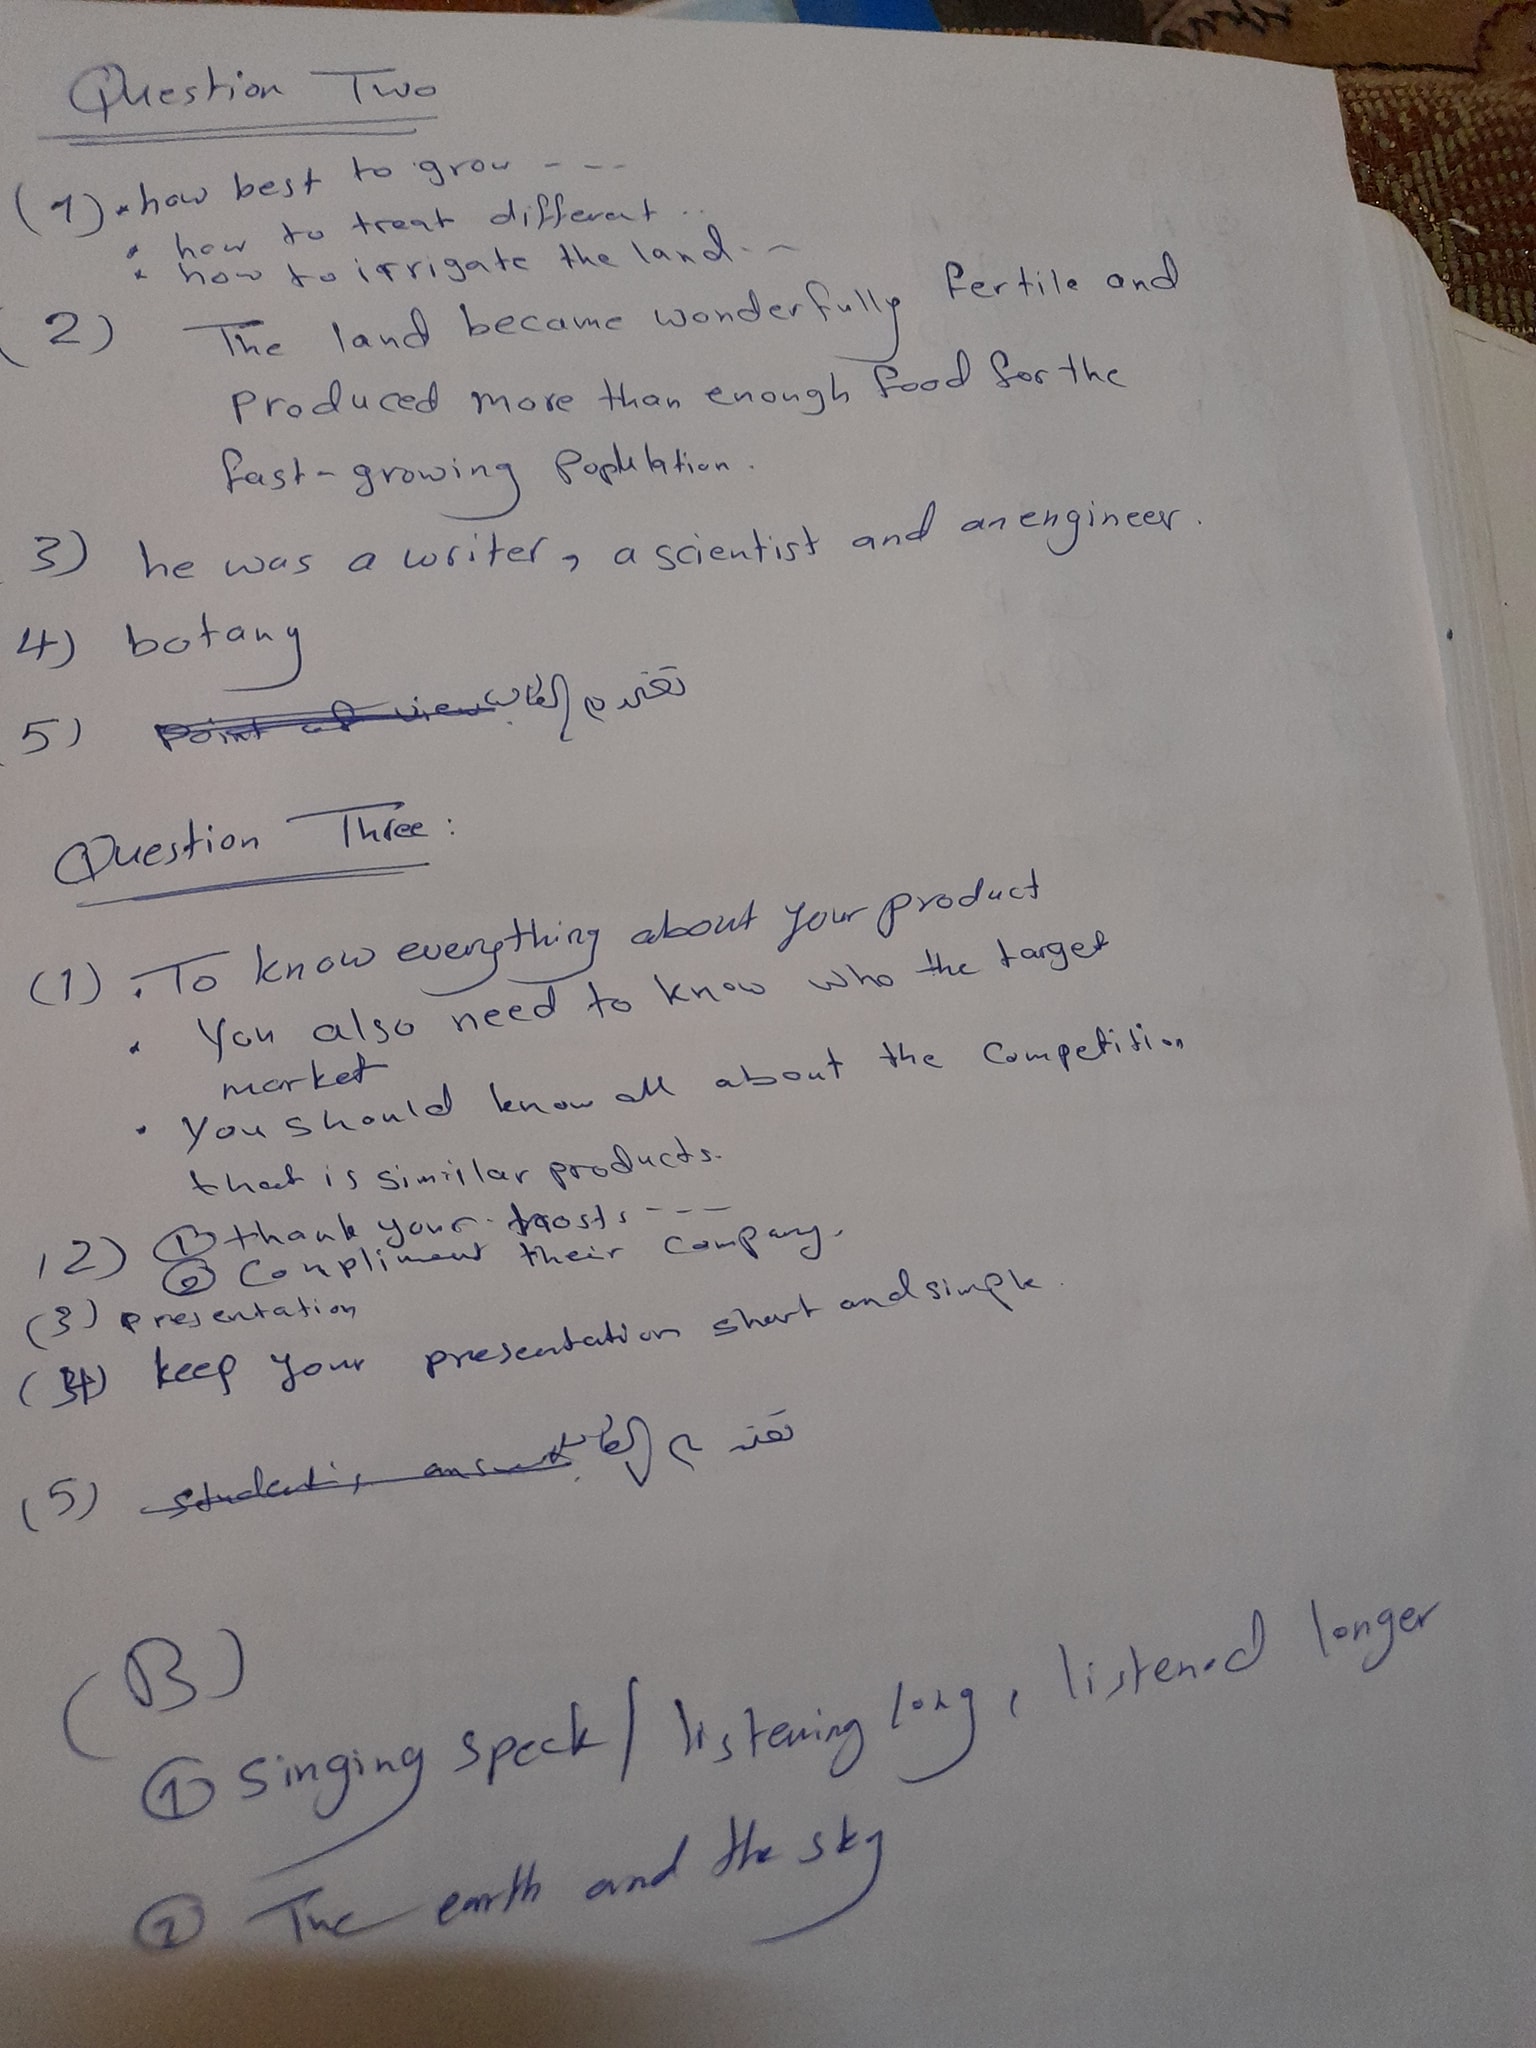 Question Two
(1) * how best to grow ---
* how to treat different ..
* how to irrigate the land --
(2) The land became wonderfully fertile and
produced more than enough food for the
fast-growing population.
3) he was a writer, a scientist and an engineer.
4) botany
5) Point of view
Question Three:
(1) . To know everything about your product
. You also need to know who the target
market
. You should know all about the competition
that is similar products.
(2) ① thank your hosts ---
② Compliment their company.
(3) presentation
(4) keep your presentation short and simple.
(5) student's answer
(B)
① Singing speck / listening long, listened longer
② The earth and the sky